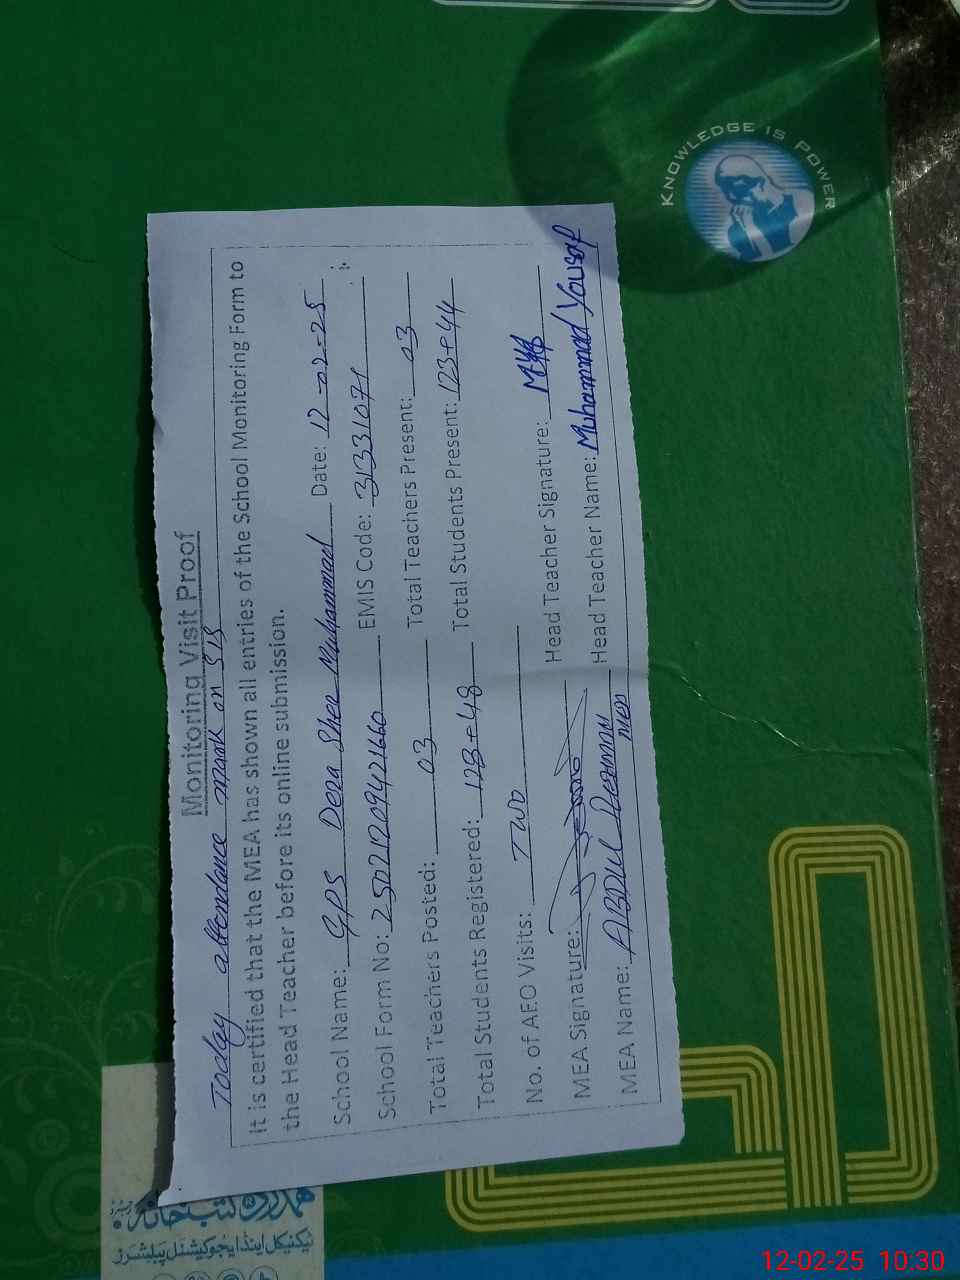 Monitoring Visit Proof
Today attendance mark on SIS
It is certified that the MEA has shown all entries of the School Monitoring Form to
the Head Teacher before its online submission.
School Name: GPS Dera Sher Muhammad Date: 12-02-25
School Form No: 250212094216660 EMIS Code: 31331071
Total Teachers Posted: 03 Total Teachers Present: 03
Total Students Registered: 128+48 Total Students Present: 123+44
No. of AEO Visits: TWO
MEA Signature: Head Teacher Signature:
MEA Name: ABDUL Head Teacher Name: Muhammad Yousaf
KNOWLEDGE IS POWER
ہمدرد کتب خانہ
ٹیکنیکل اینڈ ایجوکیشنل پبلیشرز
12-02-25 10:30